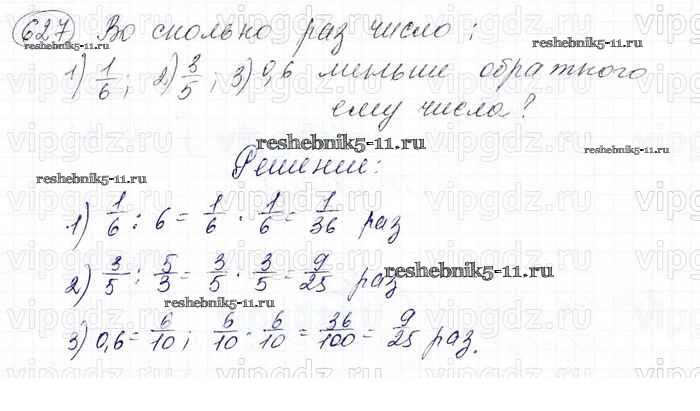 627) Во сколько раз число:
1) 1/6; 2) 3/5; 3) 0,6 меньше обратного
ему числа?
Решение:
1) 1/6 : 6 = 1/6 · 1/6 = 1/36 раз
2) 3/5 : 5/3 = 3/5 · 3/5 = 9/25 раз
3) 0,6 = 6/10; 6/10 · 6/10 = 36/100 = 9/25 раз.
reshebnik5-11.ru
reshebnik5-11.ru
reshebnik5-11.ru
reshebnik5-11.ru
reshebnik5-11.ru
reshebnik5-11.ru
reshebnik5-11.ru
vipgdz.ru